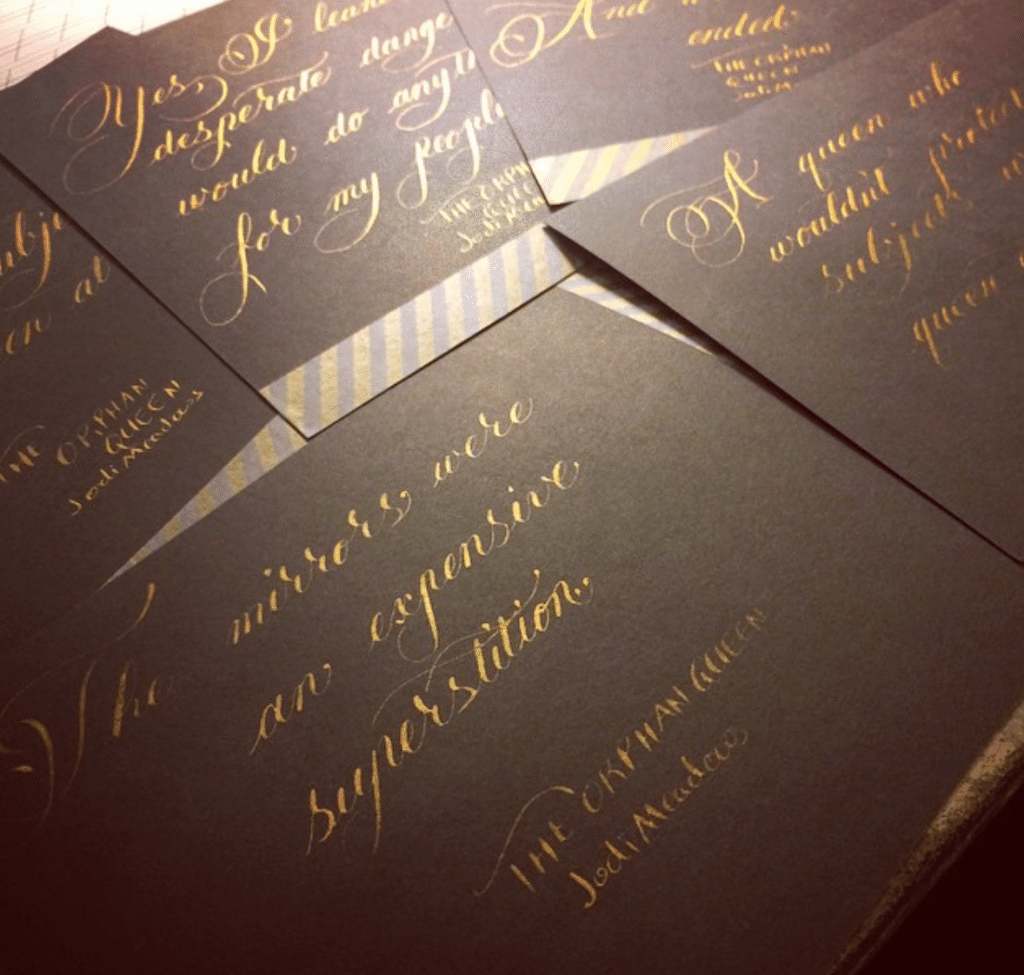 Yes, I
desperate
would do
for my people
THE
Jodi
And
ended.
THE ORPHAN
QUEEN
Jodi M
A queen who
wouldn't protect
subjects
queen
en al
THE ORPHAN
QUEEN
Jodi Meadows
The mirrors were
an expensive
superstition.
THE ORPHAN QUEEN
Jodi Meadows